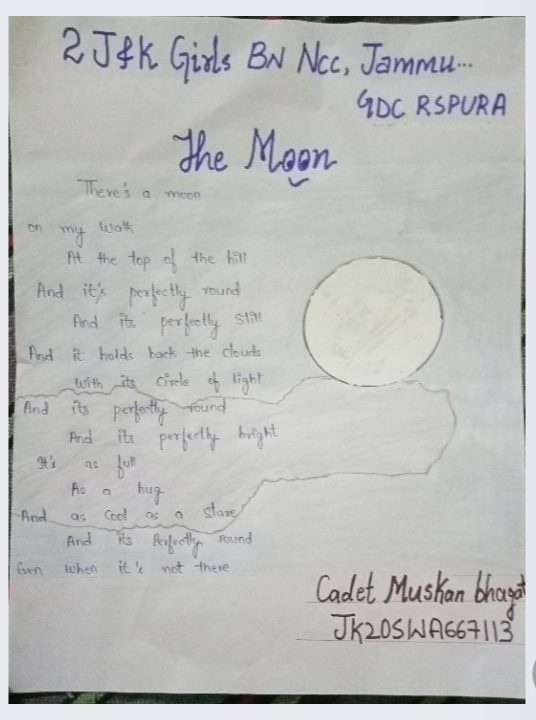 2 J&K Girls BN NCC, Jammu...
GDC RSPURA
The Moon
There's a moon
on my walk
At the top of the hill
And it's perfectly round
And its perfectly still
And it holds back the clouds
With its circle of light
And its perfectly round
And its perfectly bright
It's as full
As a hug
And as cool as a stare
And its Perfectly round
Even when it's not there
Cadet Muskan bhagat
JK20SWA667113